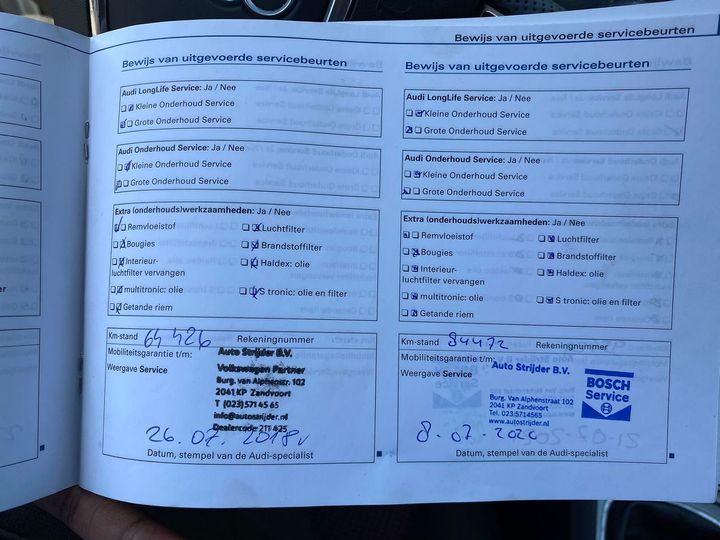 Bewijs van uitgevoerde servicebeurten
Bewijs van uitgevoerde servicebeurten
Audi LongLife Service: Ja / Nee
Kleine Onderhoud Service
Grote Onderhoud Service
Audi Onderhoud Service: Ja / Nee
Kleine Onderhoud Service
Grote Onderhoud Service
Extra (onderhouds)werkzaamheden: Ja / Nee
Remvloeistof Luchtfilter
Bougies Brandstoffilter
Interieur- Haldex: olie
luchtfilter vervangen
multitronic: olie S tronic: olie en filter
Getande riem
Km-stand 64 426 Rekeningnummer
Mobiliteitsgarantie t/m:
Weergave Service
Auto Strijder B.V.
Volkswagen Partner
Burg. van Alphenstr. 102
2041 KP Zandvoort
T (023) 571 45 65
info@autostrijder.nl
Dealercode 211 425
26.07.2018
Datum, stempel van de Audi-specialist
Bewijs van uitgevoerde servicebeurten
Audi LongLife Service: Ja / Nee
Kleine Onderhoud Service
Grote Onderhoud Service
Audi Onderhoud Service: Ja / Nee
Kleine Onderhoud Service
Grote Onderhoud Service
Extra (onderhouds)werkzaamheden: Ja / Nee
Remvloeistof Luchtfilter
Bougies Brandstoffilter
Interieur- Haldex: olie
luchtfilter vervangen
multitronic: olie S tronic: olie en filter
Getande riem
Km-stand 84472 Rekeningnummer
Mobiliteitsgarantie t/m:
Weergave Service
Auto Strijder B.V.
Burg. Van Alphenstraat 102
2041 KP Zandvoort
Tel. 023:5714565
www.autostrijder.nl
BOSCH
Service
8.07.2020
Datum, stempel van de Audi-specialist